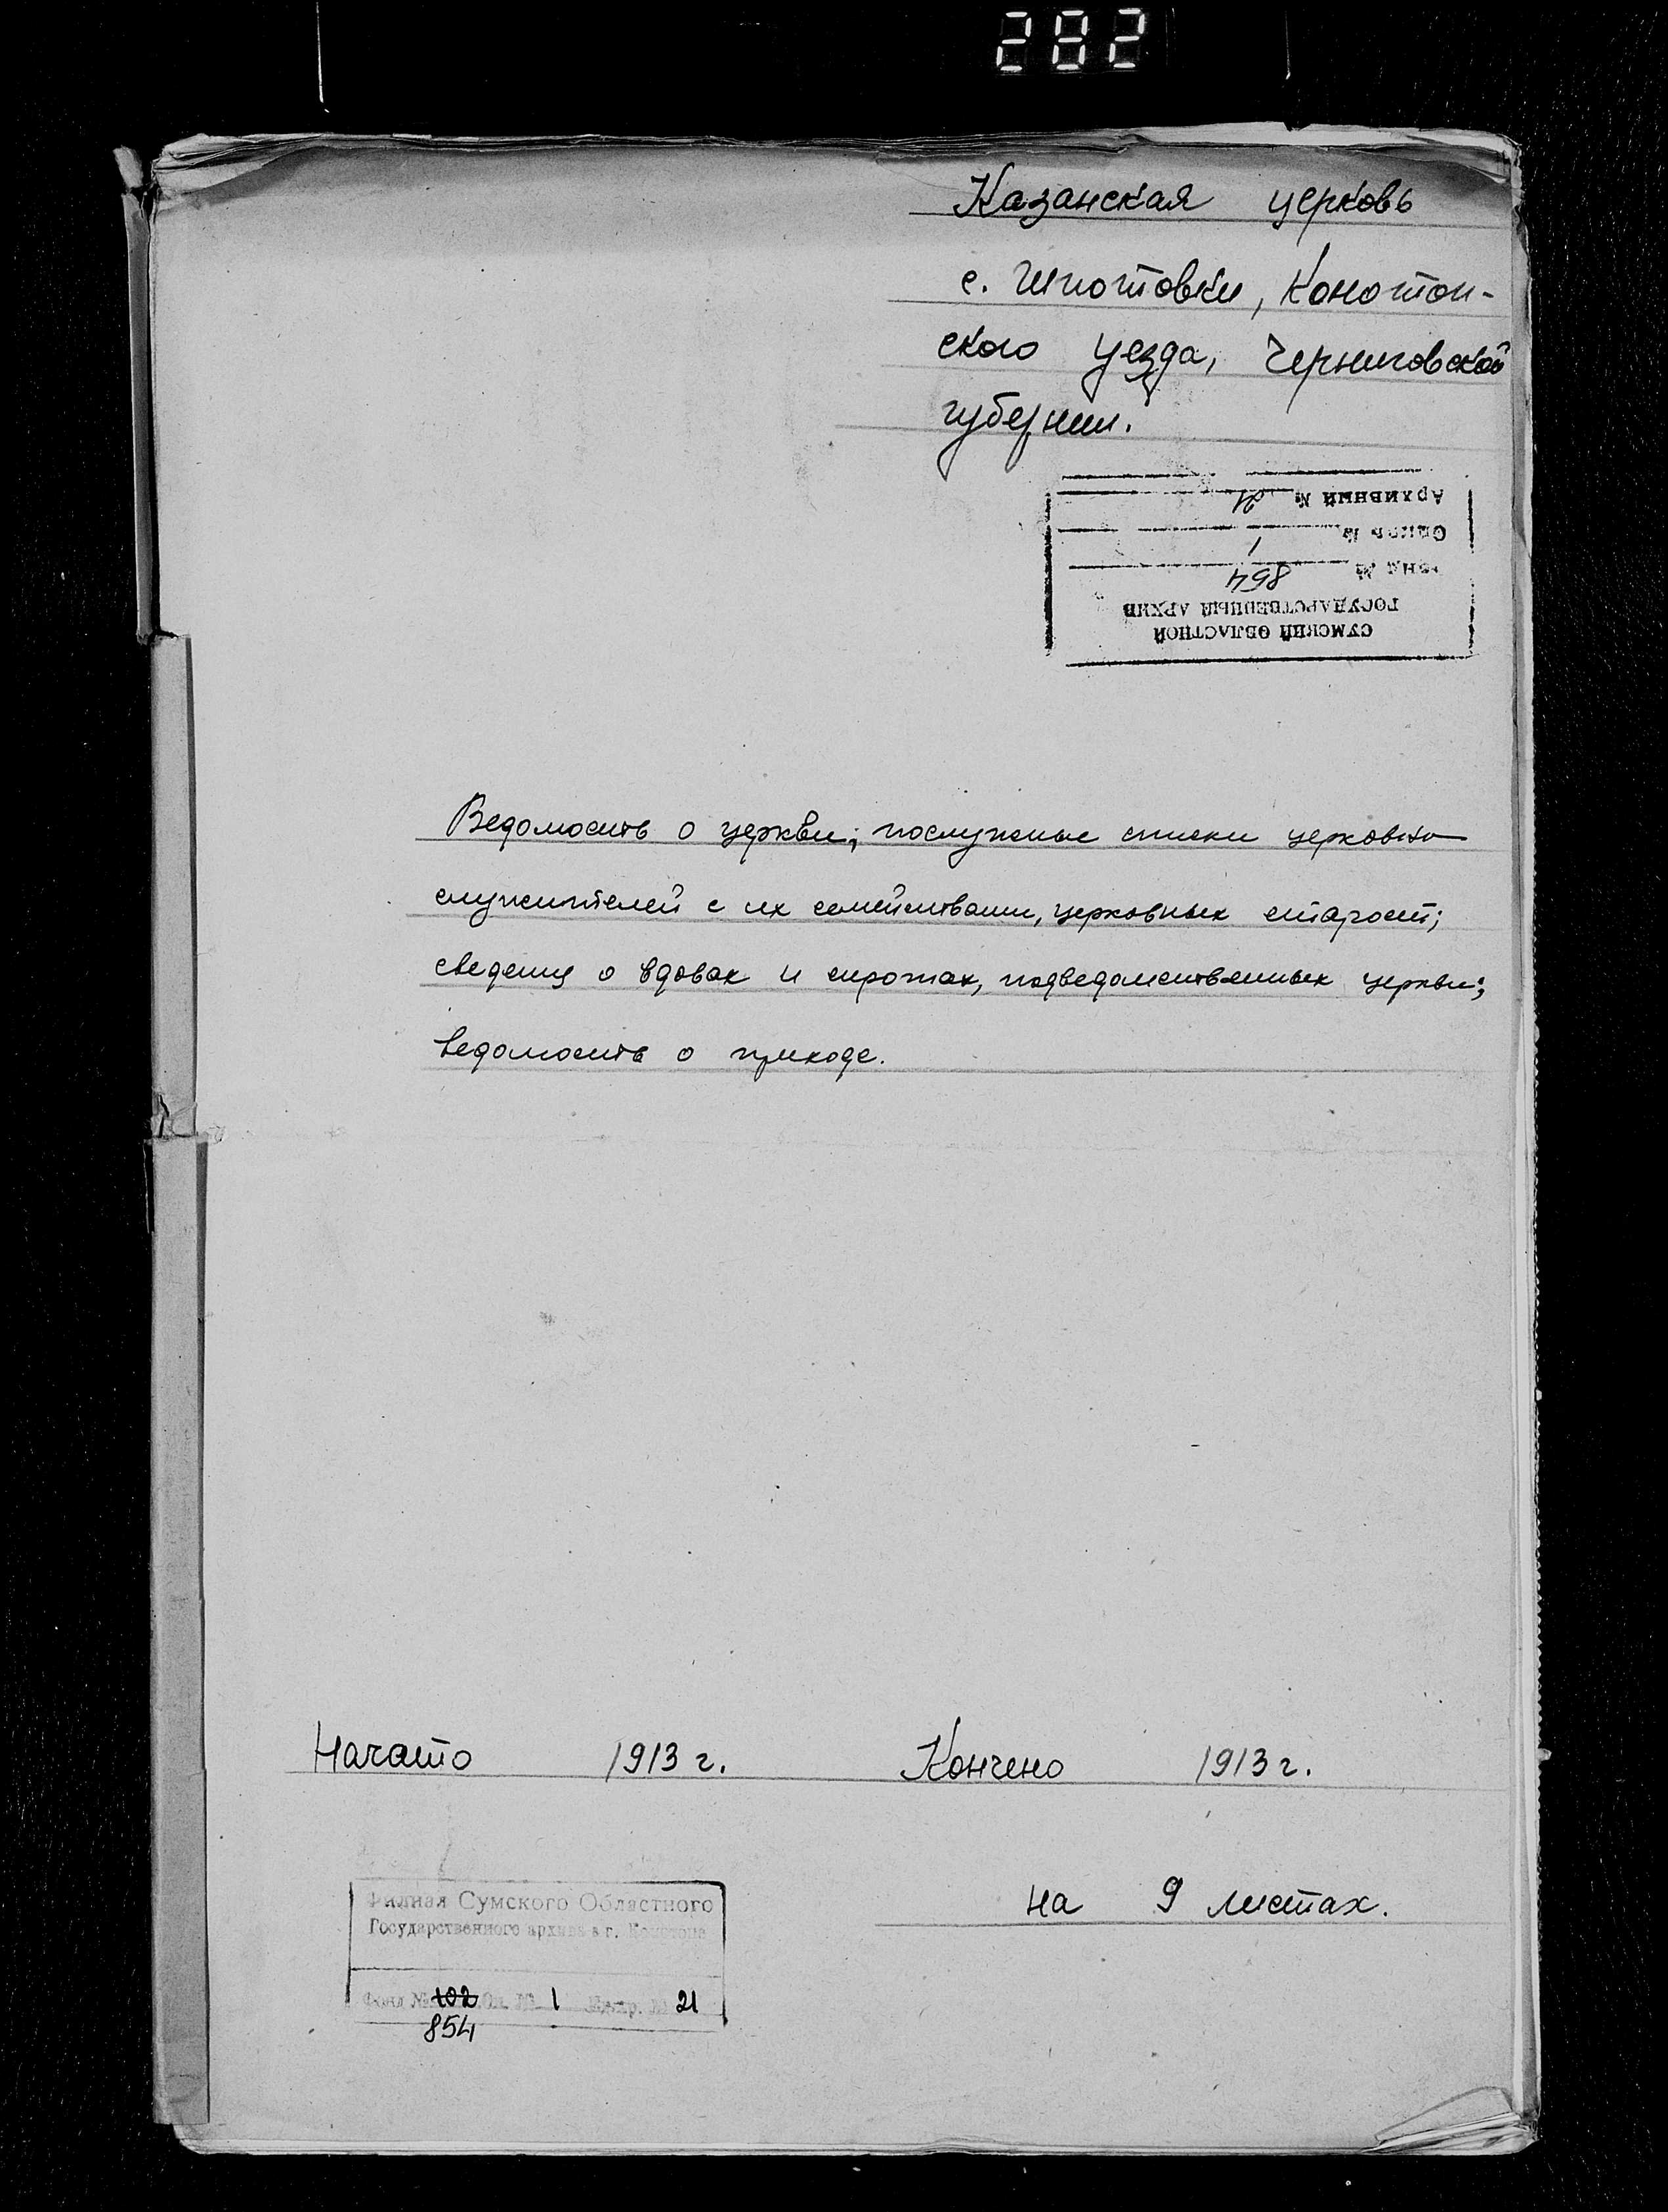 282
Казанская церковь
с. Шпотовки, Конотоп-
ского уезда, Черниговской
губернии.
СУМСКИЙ ОБЛАСТНОЙ
ГОСУДАРСТВЕННЫЙ АРХИВ
Фонд № 854
Опись № 1
Архивный № 21
Ведомость о церкви; послужные списки церковно
служителей с их семействами, церковных старост;
сведения о вдовах и сиротах, подведомственных церкви;
ведомость о приходе.
Начато 1913 г. Кончено 1913 г.
на 9 листах.
Филиал Сумского Областного
Государственного архива в г. Конотопе
Фонд № 102 Оп. № 1 № 21
854